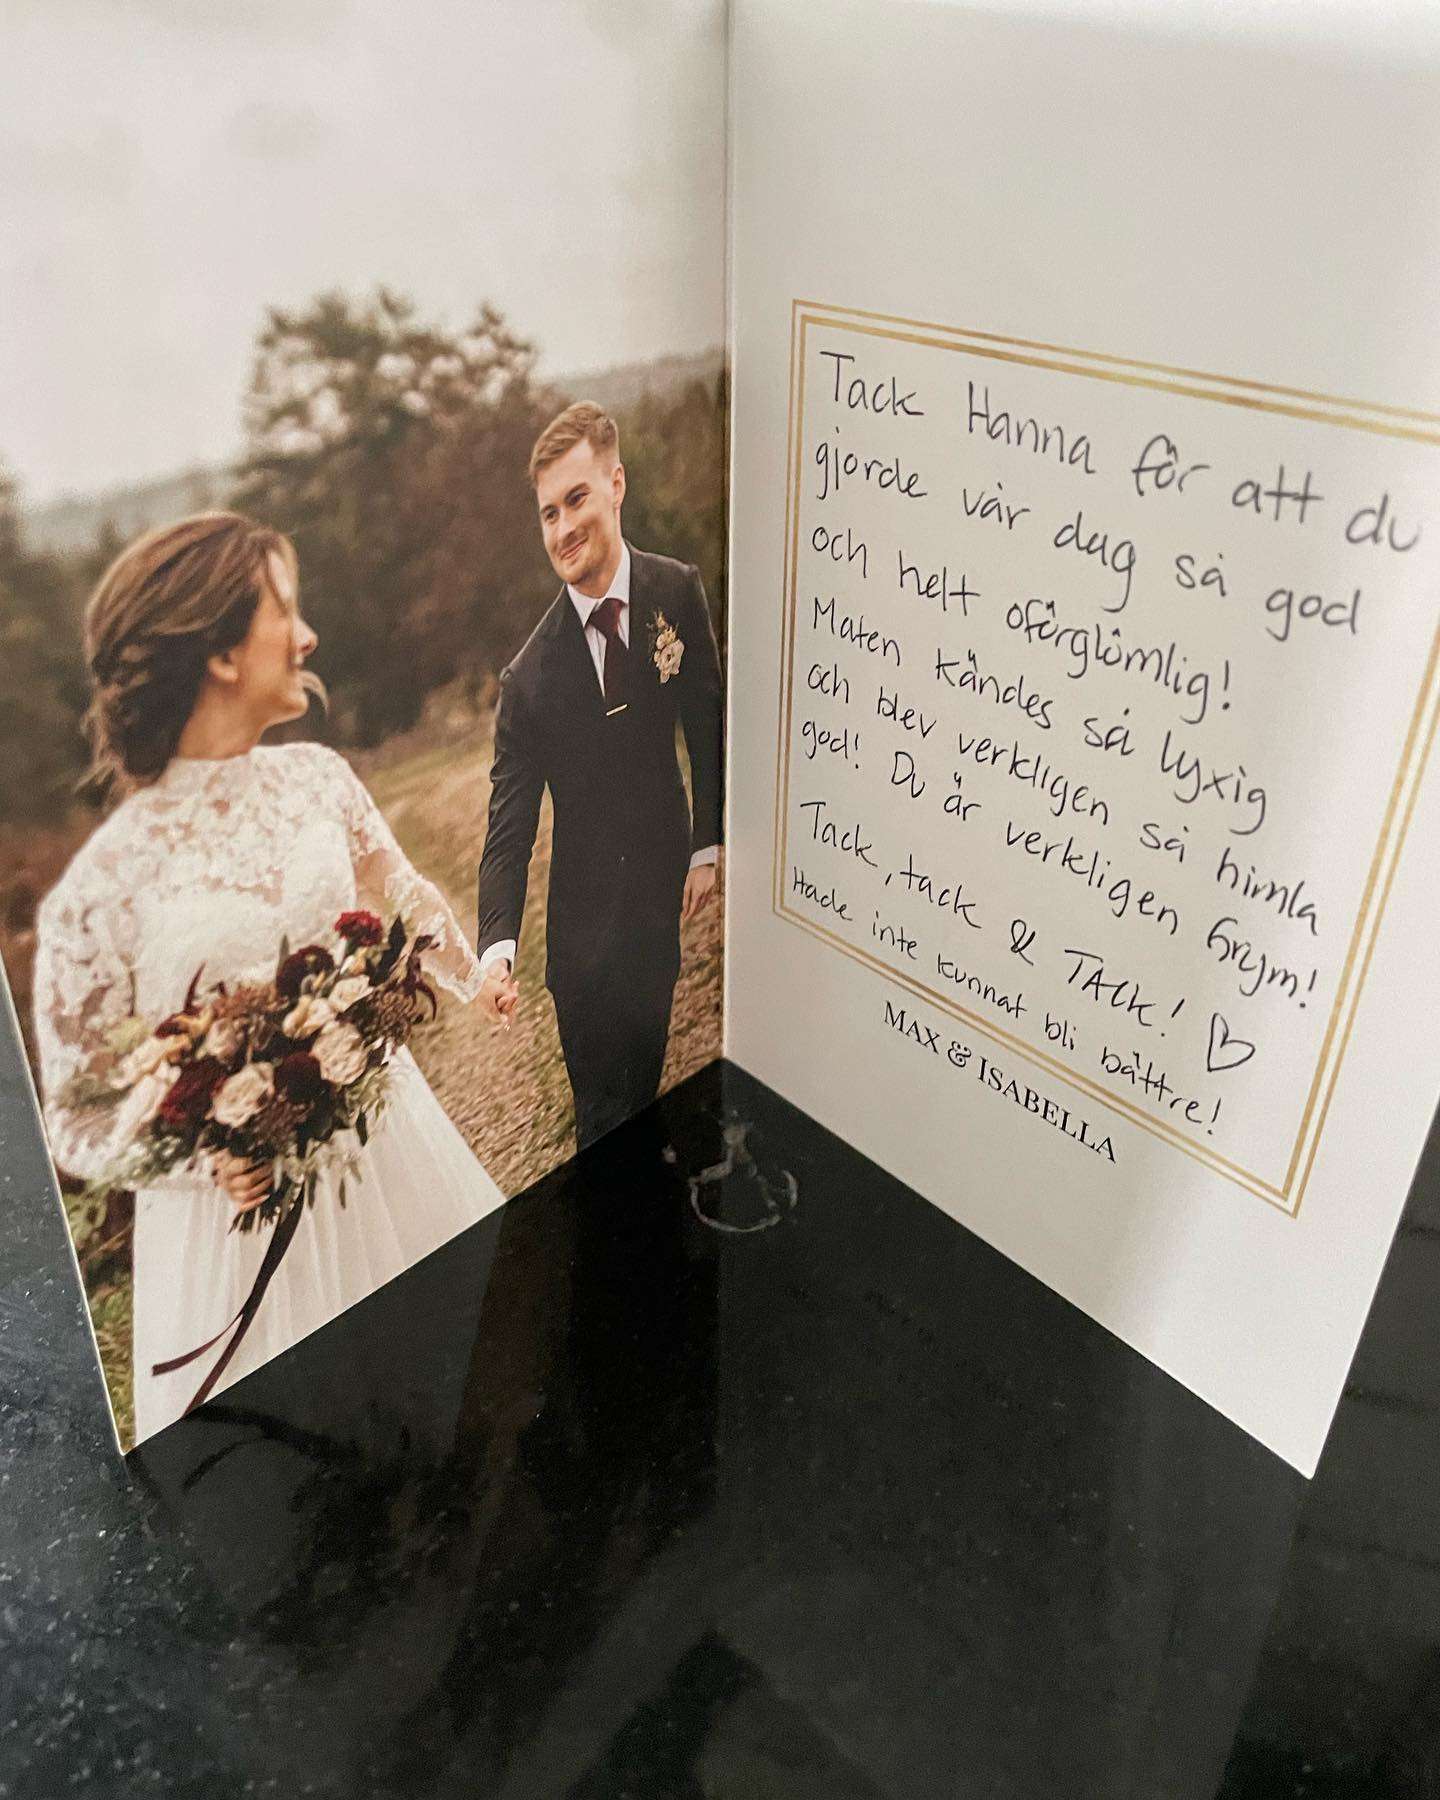 Tack Hanna för att du
gjorde vår dag så god
och helt oförglömlig!
Maten kändes så lyxig
och blev verkligen så himla
god! Du är verkligen Grym!
Tack, tack & TACK! ♡
Hade inte kunnat bli bättre!
MAX & ISABELLA